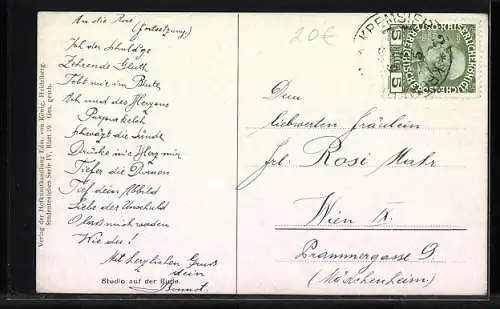 An die Rose
(Fortsetzung)
Ich der Schuld'ge
Zehrende Gluth
Tobt mir im Blute
Und des Herzens
Purpurkelch
die Sünde
Drücke in's Herz mir
Tiefer die Dornen
Tief dein Abbild
Liebe der Unschuld
O laß mich werden
Wie du!
Mit herzlichen Gruss
dein
Studio auf der Bude.
Verlag der Hofkunsthandlung Edm. von König, Heidelberg.
Studentenleben Serie IV, Blatt 19. Ges. gesch.
20€
KREMSIER
5 5
Dem
liebwerten Fräulein
Frl. Rosi Mahr
Wien IX.
Prammergasse 9
(Mädchenheim)